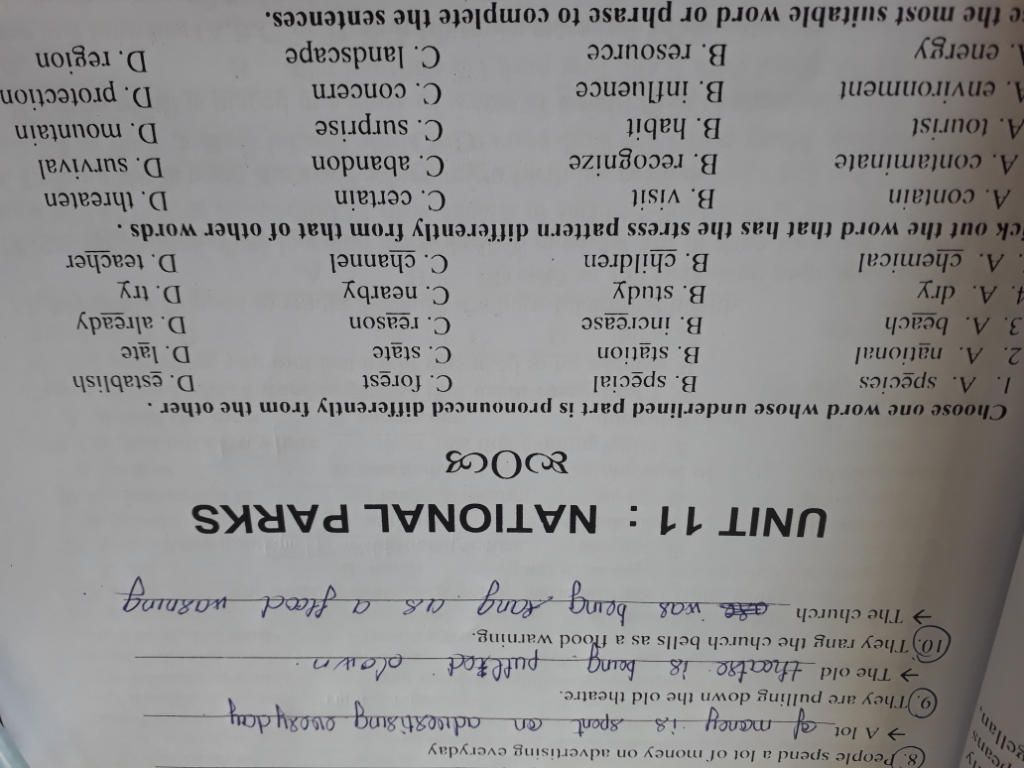 8. People spend a lot of money on advertising everyday
→ A lot of money is spent on advertising everyday
9. They are pulling down the old theatre.
→ The old theatre is being pulled down.
10. They rang the church bells as a flood warning.
→ The church was being rang as a flood warning
UNIT 11 : NATIONAL PARKS
Choose one word whose underlined part is pronounced differently from the other .
1. A. species B. special C. forest D. establish
2. A. national B. station C. state D. late
3. A. beach B. increase C. reason D. already
4. A. dry B. study C. nearby D. try
. A. chemical B. children C. channel D. teacher
ick out the word that has the stress pattern differently from that of other words .
A. contain B. visit C. certain D. threaten
A. contaminate B. recognize C. abandon D. survival
A. tourist B. habit C. surprise D. mountain
A. environment B. influence C. concern D. protection
A. energy B. resource C. landscape D. region
e the most suitable word or phrase to complete the sentences.
gellan,
peans
rly